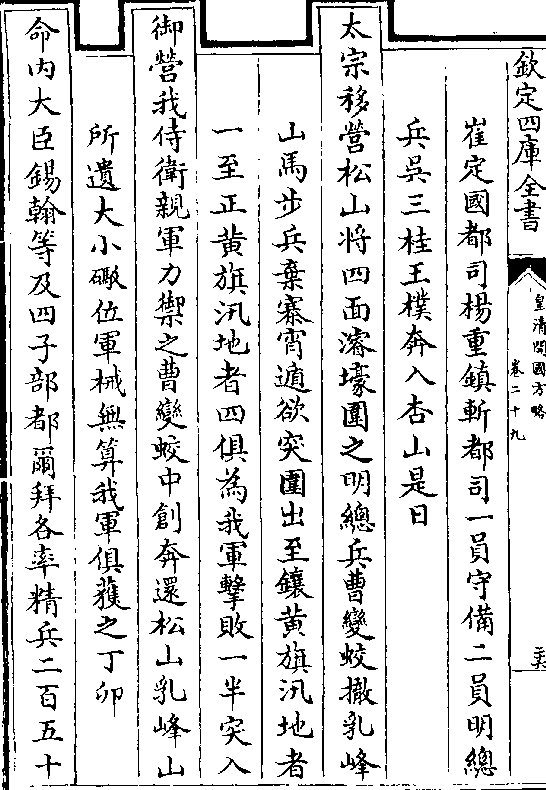 欽定四庫全書
皇清開國方略
卷二十九
崔定國都司楊重鎮斬都司一員守備二員明總
兵吳三桂王樸奔入杏山是日
太宗移營松山將四面濬壕圍之明總兵曹變蛟撤乳峰
山馬步兵棄寨宵遁欲突圍出至鑲黃旗汛地者
一至正黃旗汛地者四俱為我軍擊敗一半突入
御營我侍衛親軍力禦之曹變蛟中創奔還松山乳峰山
所遺大小礮位軍械無算我軍俱獲之丁卯
命內大臣錫翰等及四子部都爾拜各率精兵二百五十